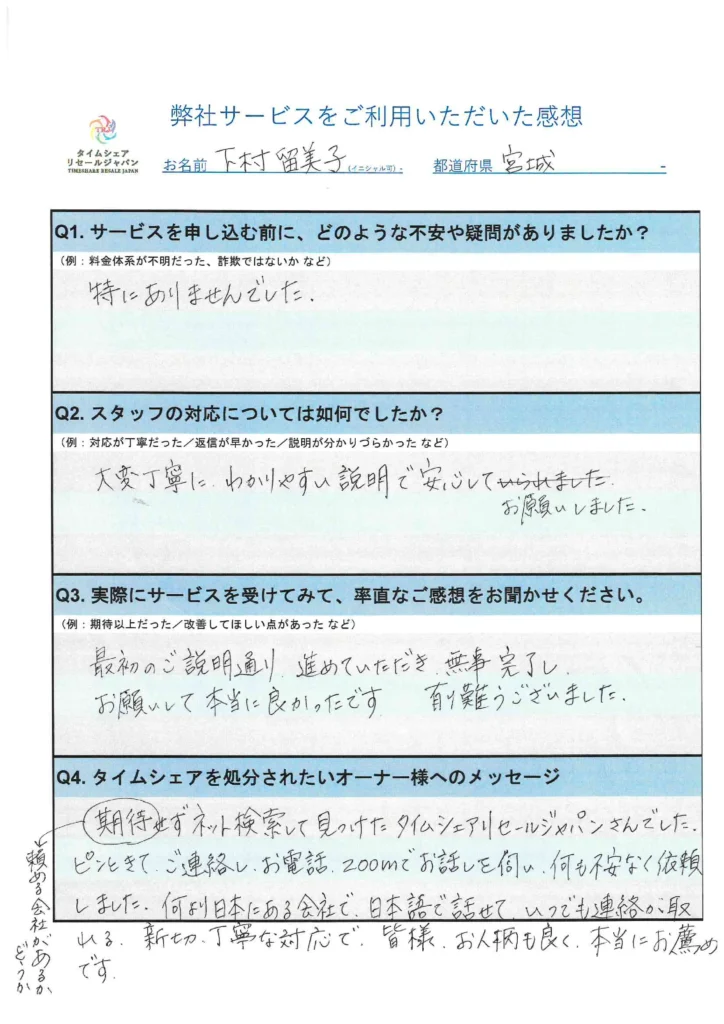 弊社サービスをご利用いただいた感想
タイムシェア
リセールジャパン
TIMESHARE RESALE JAPAN
お名前 下村 留美子 (イニシャル可)- 都道府県 宮城 -
Q1. サービスを申し込む前に、どのような不安や疑問がありましたか？
(例：料金体系が不明だった、詐欺ではないか など)
特にありませんでした.
Q2. スタッフの対応については如何でしたか？
(例：対応が丁寧だった／返信が早かった／説明が分かりづらかった など)
大変丁寧に、わかりやすい説明で安心していられました.
お願いしました.
Q3. 実際にサービスを受けてみて、率直なご感想をお聞かせください。
(例：期待以上だった／改善してほしい点があった など)
最初のご説明通り、進めていただき、無事完了し、
お願いして本当に良かったです 有難うございました.
Q4. タイムシェアを処分されたいオーナー様へのメッセージ
期待せずネット検索して見つけたタイムシェアリセールジャパンさんでした.
ピンときて、ご連絡し、お電話、zoomでお話しを伺い、何も不安なく依頼
しました. 何より日本にある会社で、日本語で話せて、いつでも連絡が取
れる、新切、丁寧な対応で、皆様、お人柄も良く、本当にお薦め
です.
頼める会社があるか
どうか